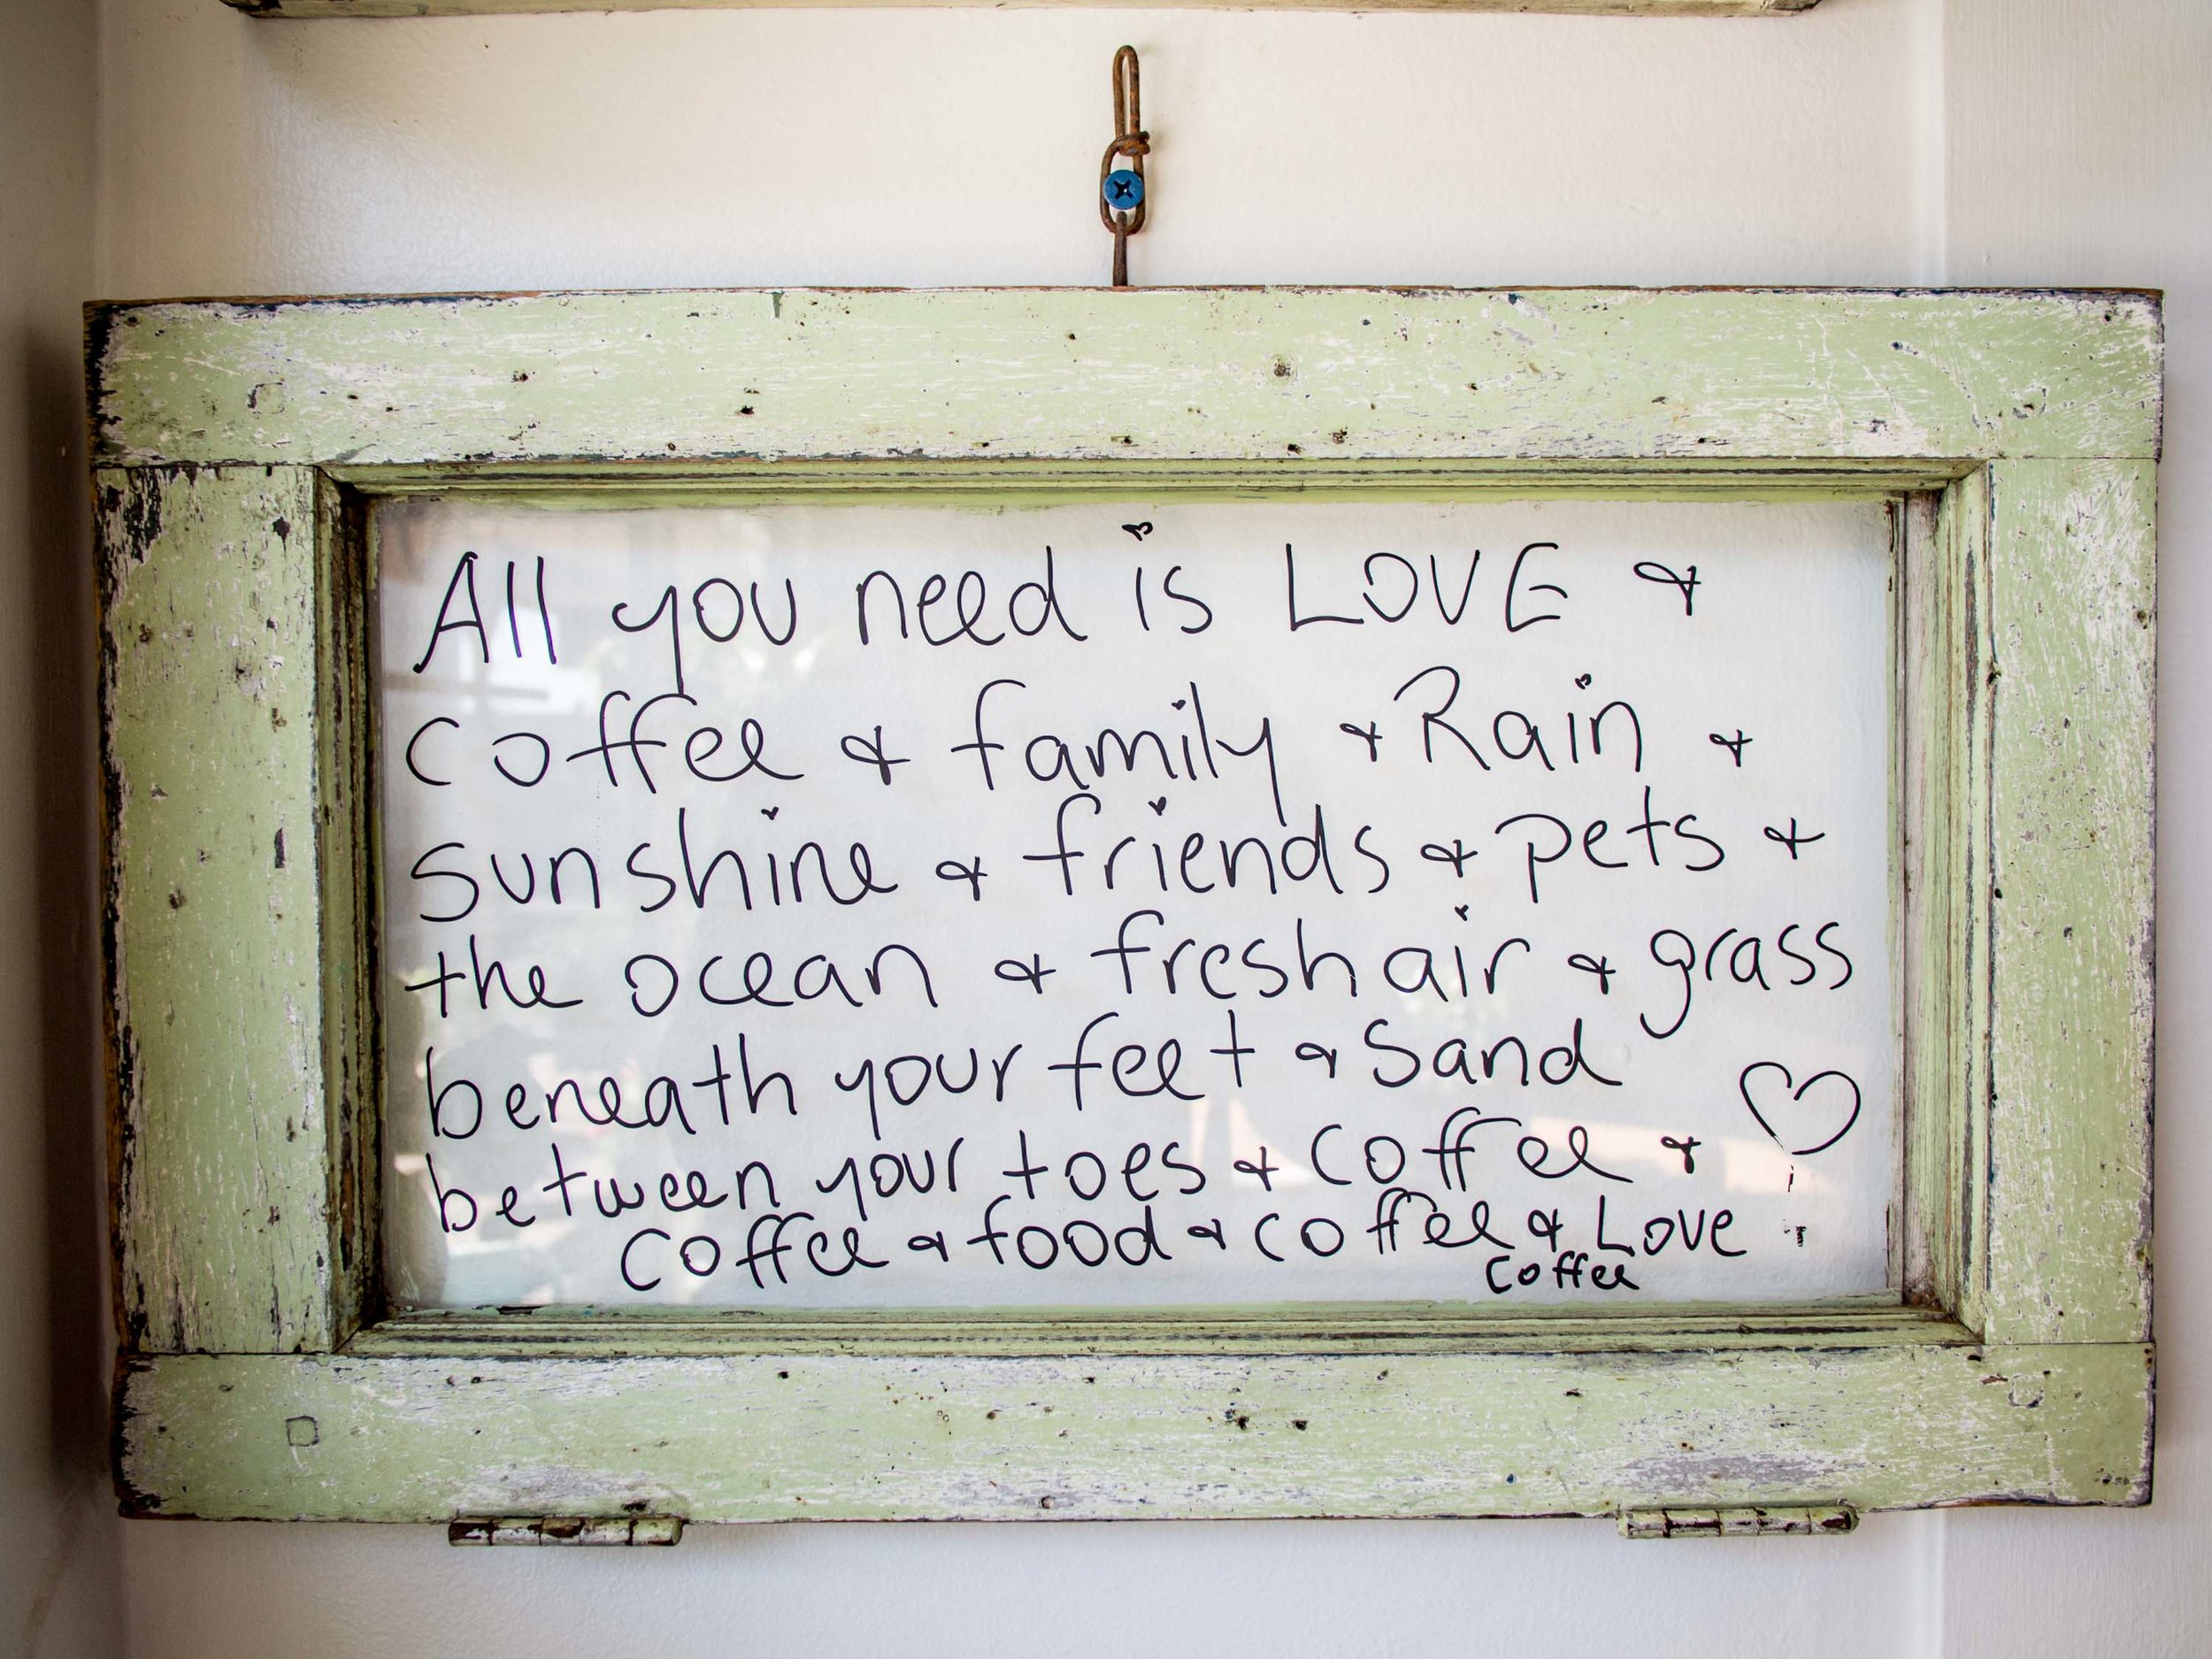 All you need is LOVE &
coffee & family & Rain &
sunshine & friends & pets &
the ocean & fresh air & grass
beneath your feet & Sand
between your toes & coffee &
coffee & food & coffee & Love
coffee